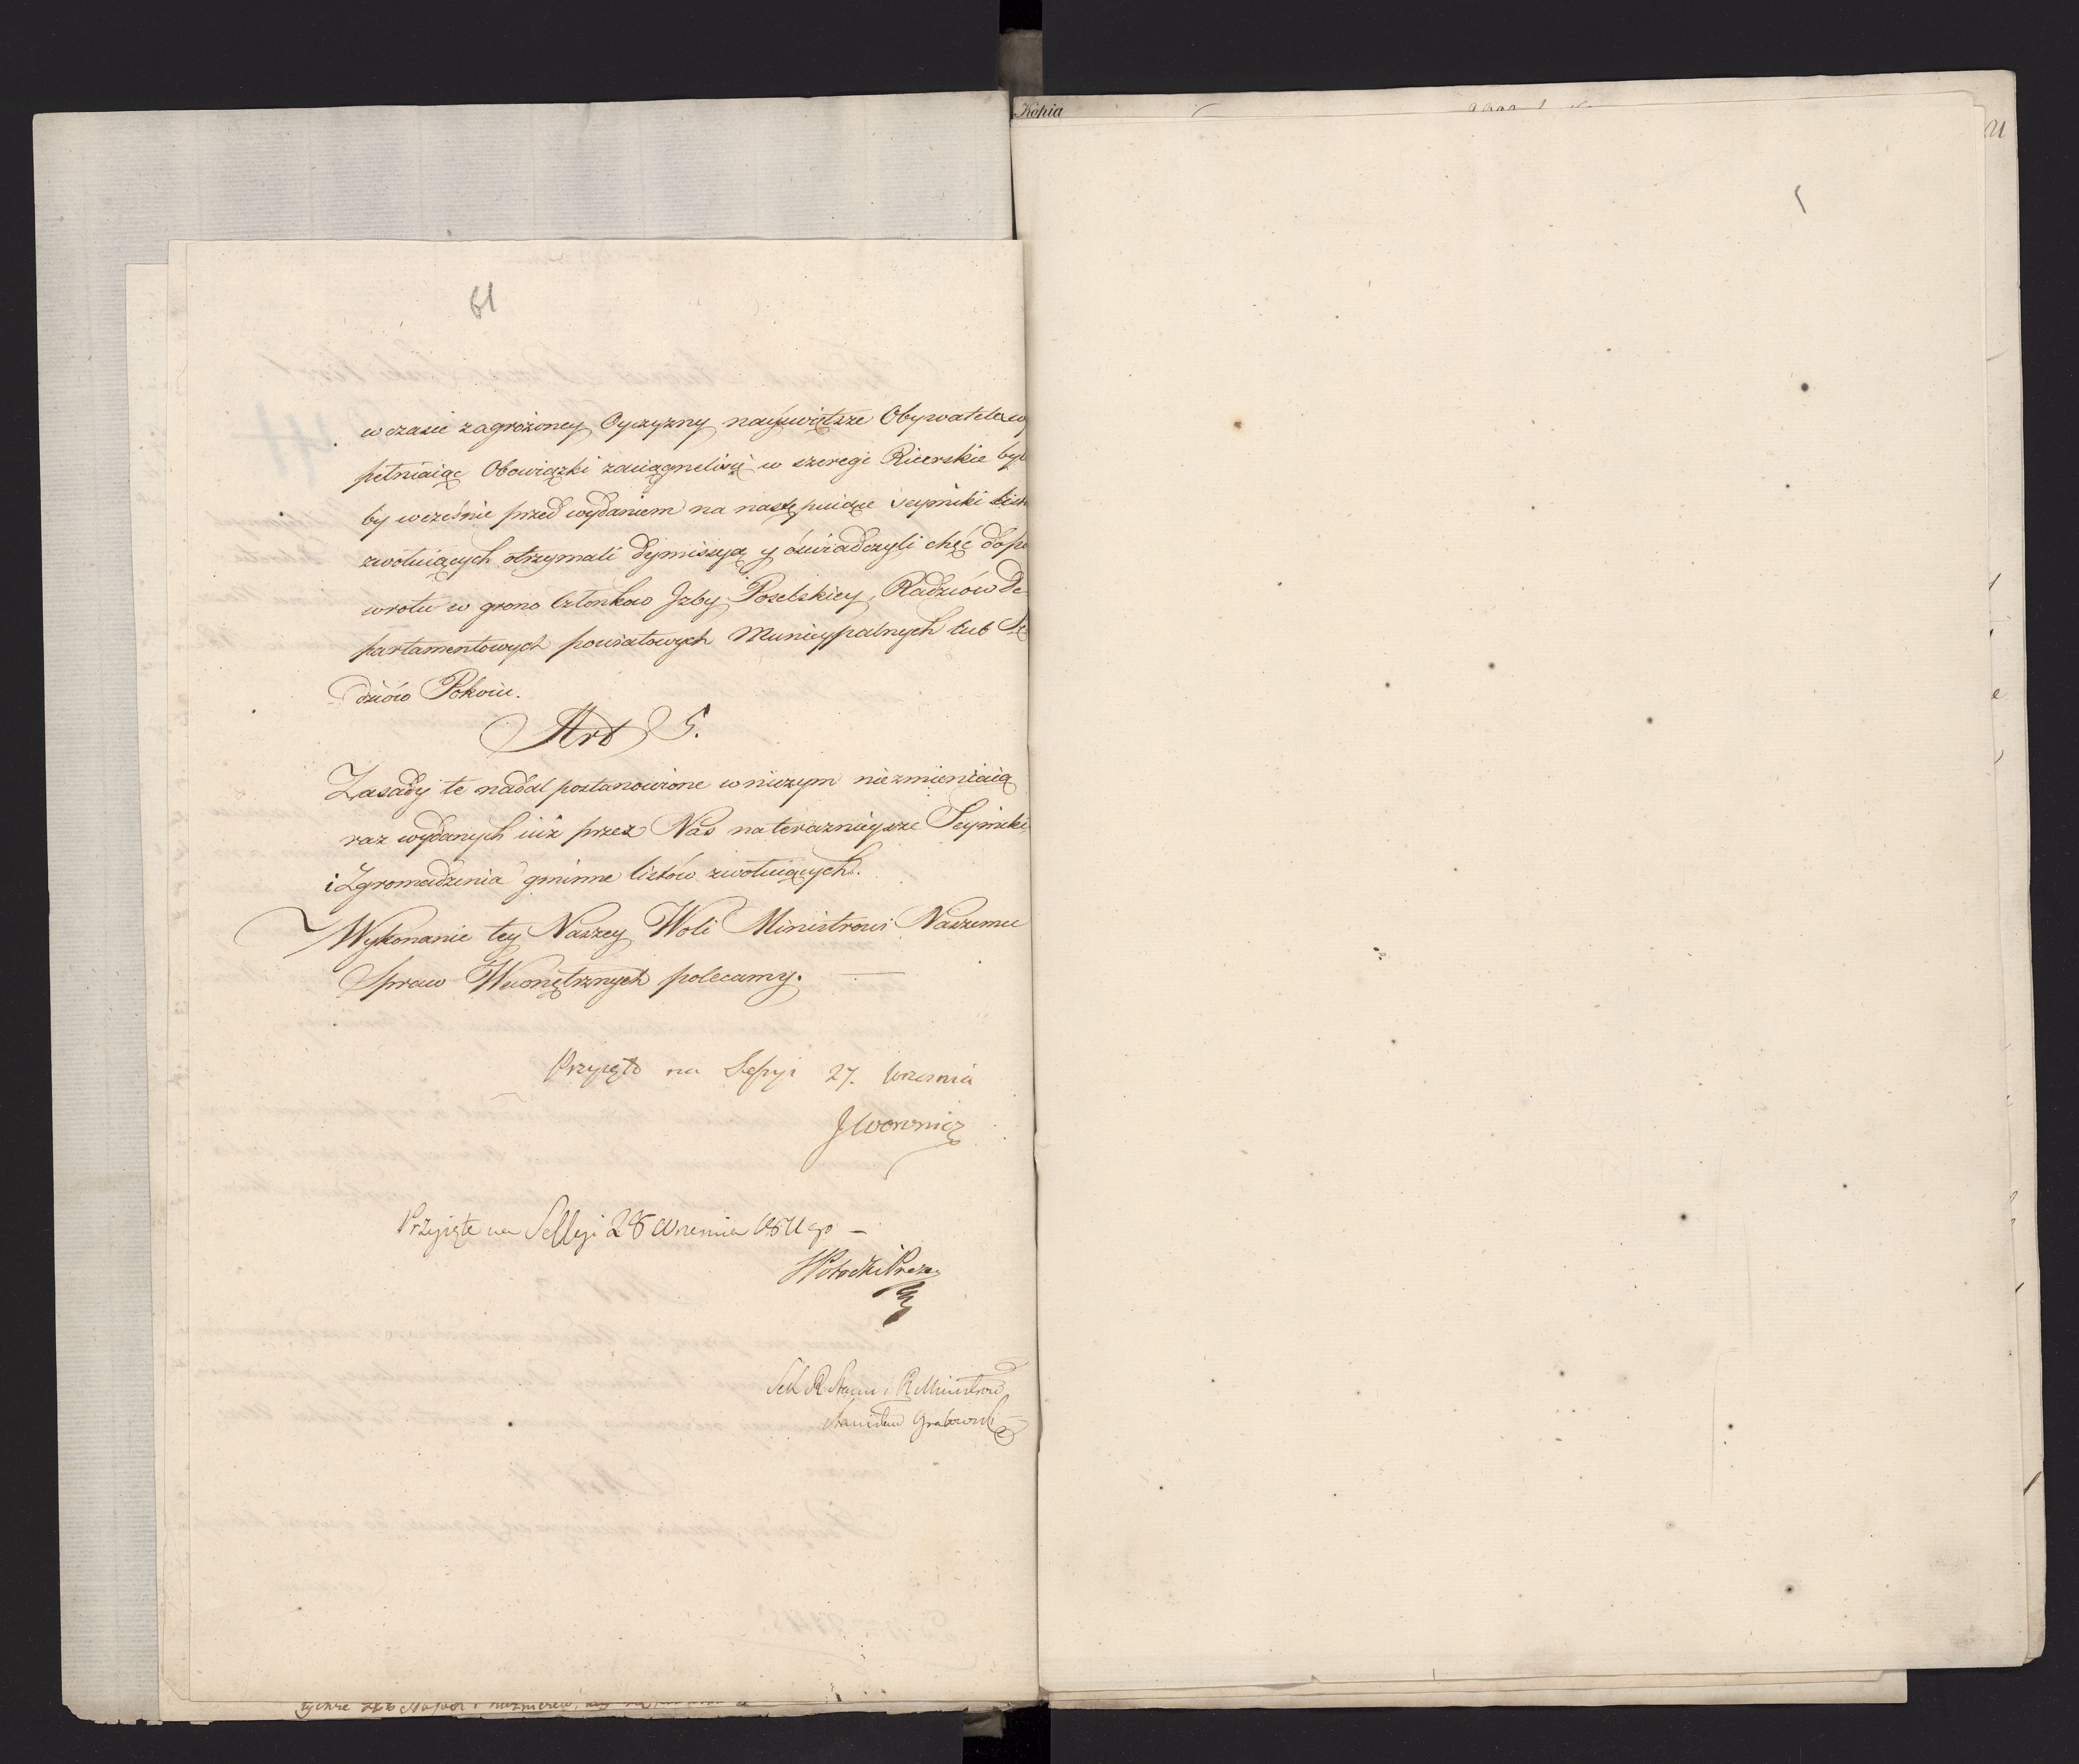 61
w czasie zagrożoney Oyczyzny nayświętsze Obywatelow
pełniąc Obowiązki zaciągneli się w szeregi Ricerskie byle
by wcześnie przed wydaniem na następuiące seymiki listów
zwołuiących otrzymali dymissyą y oświadczyli chęć dopo
wrotu w grono Członkow Jzby Poselskiey, Radzców De
partamentowych powiatowych Municypalnych lub Sę
dziów Pokoiu.
Art 5.
Zasady te nadal postanowione w niczym niezmieniaią
raz wydanych iuż przez Nas na terazniejsze Seymiki
i Zgromadzenia gminne listów zwołuiących.
Wykonanie tey Naszey Woli Ministrowi Naszemu
Spraw Wewnętrznych polecamy.
Przyięto na Sessyi 27. Wrzesnia
JWoronicz
Przyięte na Sessyi 28 Wrzesnia 1811 go
SPotocki Prezes
Sek R Stanu i R Ministrów
Stanisław Grabowski
Kopia